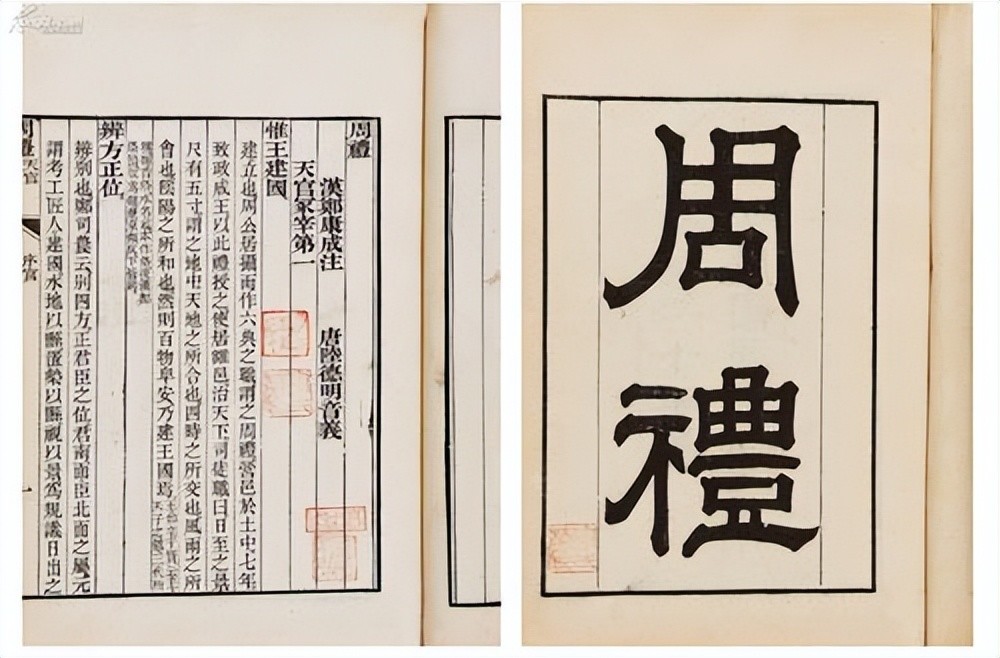 周禮
周禮
漢鄭康成注 唐陸德明音義
天官冢宰第一
惟王建國
建立也周公居攝而作六典之職謂之周禮營邑於土中七年
致政成王以此禮授之使居雒邑治天下司徒職曰日至之景
尺有五寸謂之地中天地之所合也四時之所交也風雨之所
會也陰陽之所和也然則百物阜安乃建王國焉
辨方正位
辨別也鄭司農云別四方正君臣之位君南面臣北面之屬元
謂考工匠人建國水地以縣置槷以縣視以景爲規識日出之
周禮天官 序官 一